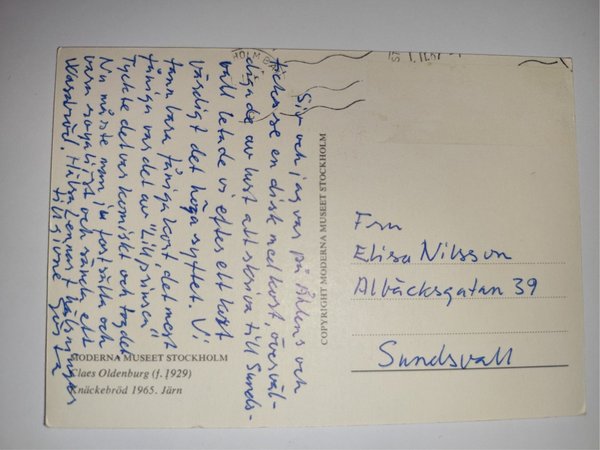 Siv och jag var på Åhlens och
fick se en disk med kort, överväl-
digade av lust att skriva till Sunds-
vall letade vi efter ett kort
värdigt det höga syftet. Vi
fann bara fåniga kort det mest
fåniga var det av "lillprinsen"
Tyckte det var komiskt och tog det
Nu måste man ju fortsätta och
vara and sända ett
Wasabröd. Hälsa Lennart hälsningar
till
MODERNA MUSEET STOCKHOLM
Claes Oldenburg (f. 1929)
Knäckebröd 1965. Järn
COPYRIGHT MODERNA MUSEET STOCKHOLM
Fru
Elisa Nilsson
Albäcksgatan 39
Sundsvall